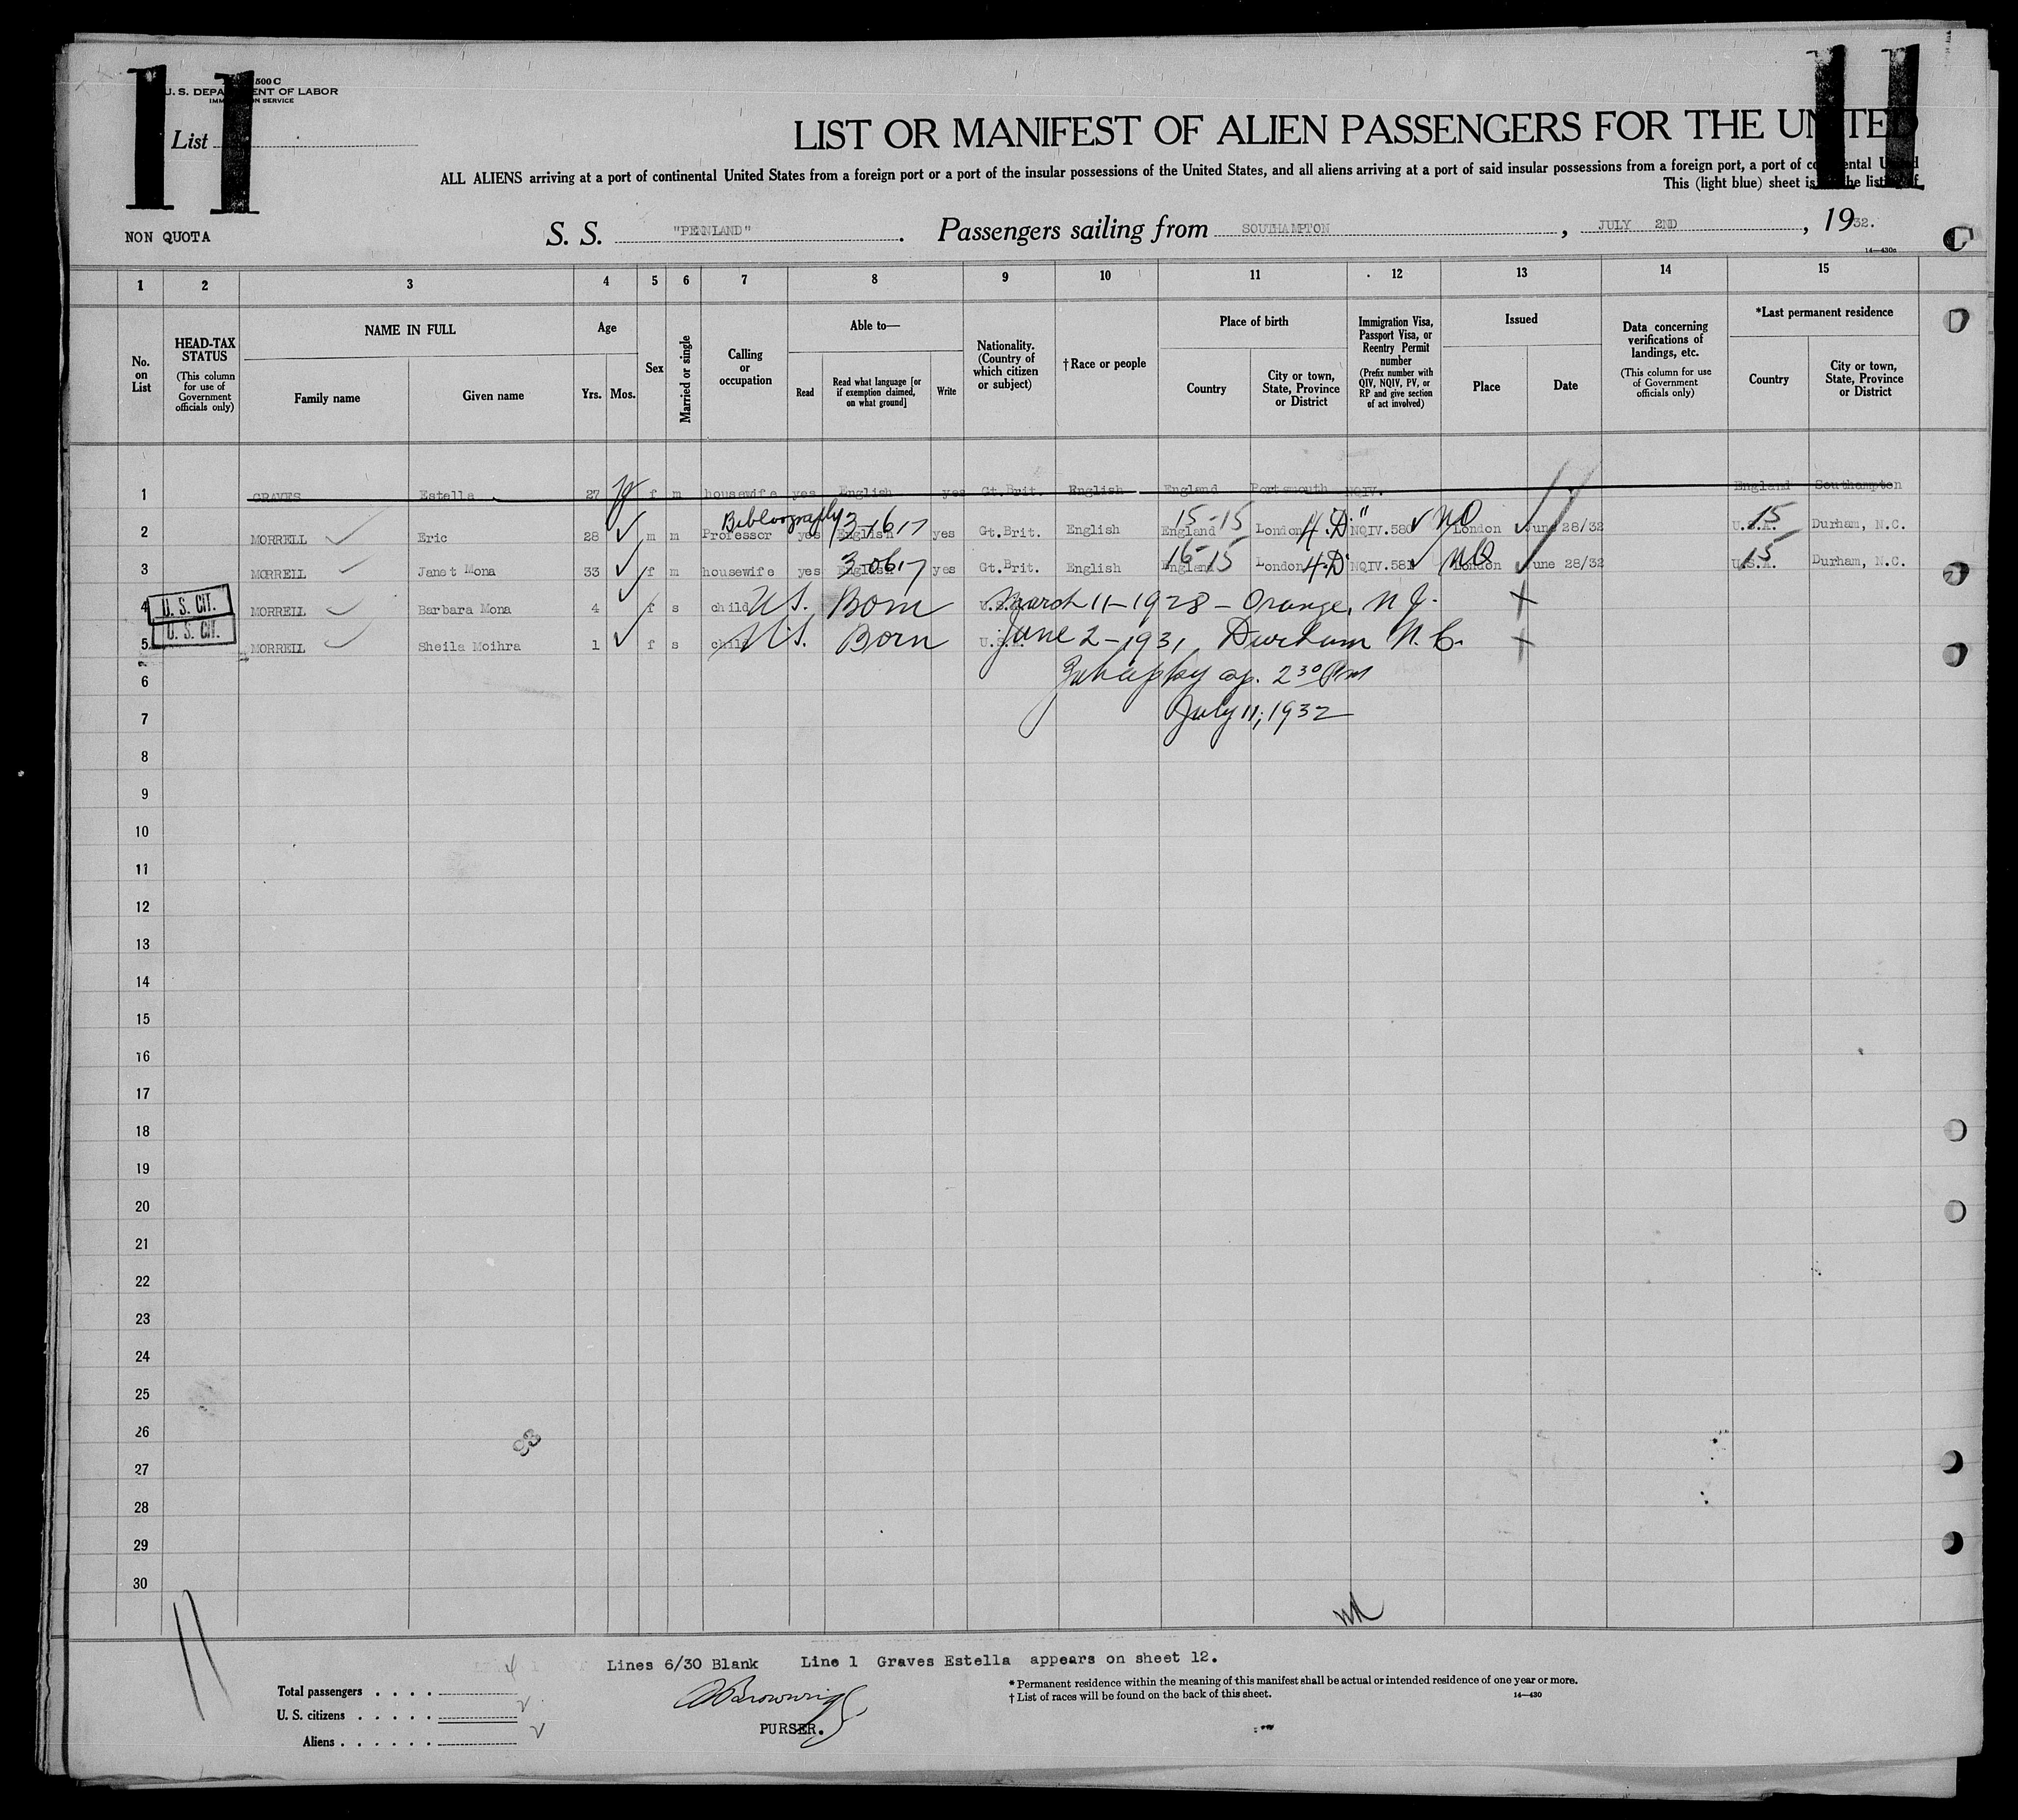 11
11
500 C
U. S. DEPARTMENT OF LABOR
IMMIGRATION SERVICE
List
LIST OR MANIFEST OF ALIEN PASSENGERS FOR THE UNITED
ALL ALIENS arriving at a port of continental United States from a foreign port or a port of the insular possessions of the United States, and all aliens arriving at a port of said insular possessions from a foreign port, a port of continental United
This (light blue) sheet is the listing of
NON QUOTA
S. S. "PENNLAND". Passengers sailing from SOUTHAMPTON, JULY 2ND, 1932.
14—430a
1 2 3 4 5 6 7 8 9 10 11 12 13 14 15
No. on List
HEAD-TAX STATUS (This column for use of Government officials only)
NAME IN FULL
Family name
Given name
Age
Yrs. Mos.
Sex
Married or single
Calling or occupation
Able to—
Read
Read what language [or if exemption claimed, on what ground]
Write
Nationality. (Country of which citizen or subject)
†Race or people
Place of birth
Country
City or town, State, Province or District
Immigration Visa, Passport Visa, or Reentry Permit number (Prefix number with QIV, NQIV, PV, or RP and give section of act involved)
Issued
Place
Date
Data concerning verifications of landings, etc. (This column for use of Government officials only)
*Last permanent residence
Country
City or town, State, Province or District
1 GRAVES Estella 27 f m housewife yes English yes Gt.Brit. English England Portsmouth NQIV. England Southampton
Bibliography 3-16 17 15-15 4.D." NO 15
2 MORRELL Eric 28 m m Professor yes English yes Gt.Brit. English England London NQIV.580 London June 28/32 U.S.A. Durham, N.C.
3-06 17 16-15 4.D. NO 15
3 MORRELL Janet Mona 33 f m housewife yes English yes Gt.Brit. English England London NQIV.581 London June 28/32 U.S.A. Durham, N.C.
U. S. CIT.
4 MORRELL Barbara Mona 4 f s child U.S. Born March 11-1928 - Orange, N.J.
U. S. CIT.
5 MORRELL Sheila Moihra 1 f s child U.S. Born June 2-1931 Durham N.C.
6 2 30 Pm
7 July 11, 1932
8
9
10
11
12
13
14
15
16
17
18
19
20
21
22
23
24
25
26
93
27
28
29
30
11
Lines 6/30 Blank Line 1 Graves Estella appears on sheet 12.
Total passengers . . . . 4
U. S. citizens . . . . . 2
Aliens . . . . . . 2
PURSER.
* Permanent residence within the meaning of this manifest shall be actual or intended residence of one year or more.
† List of races will be found on the back of this sheet.
14—430